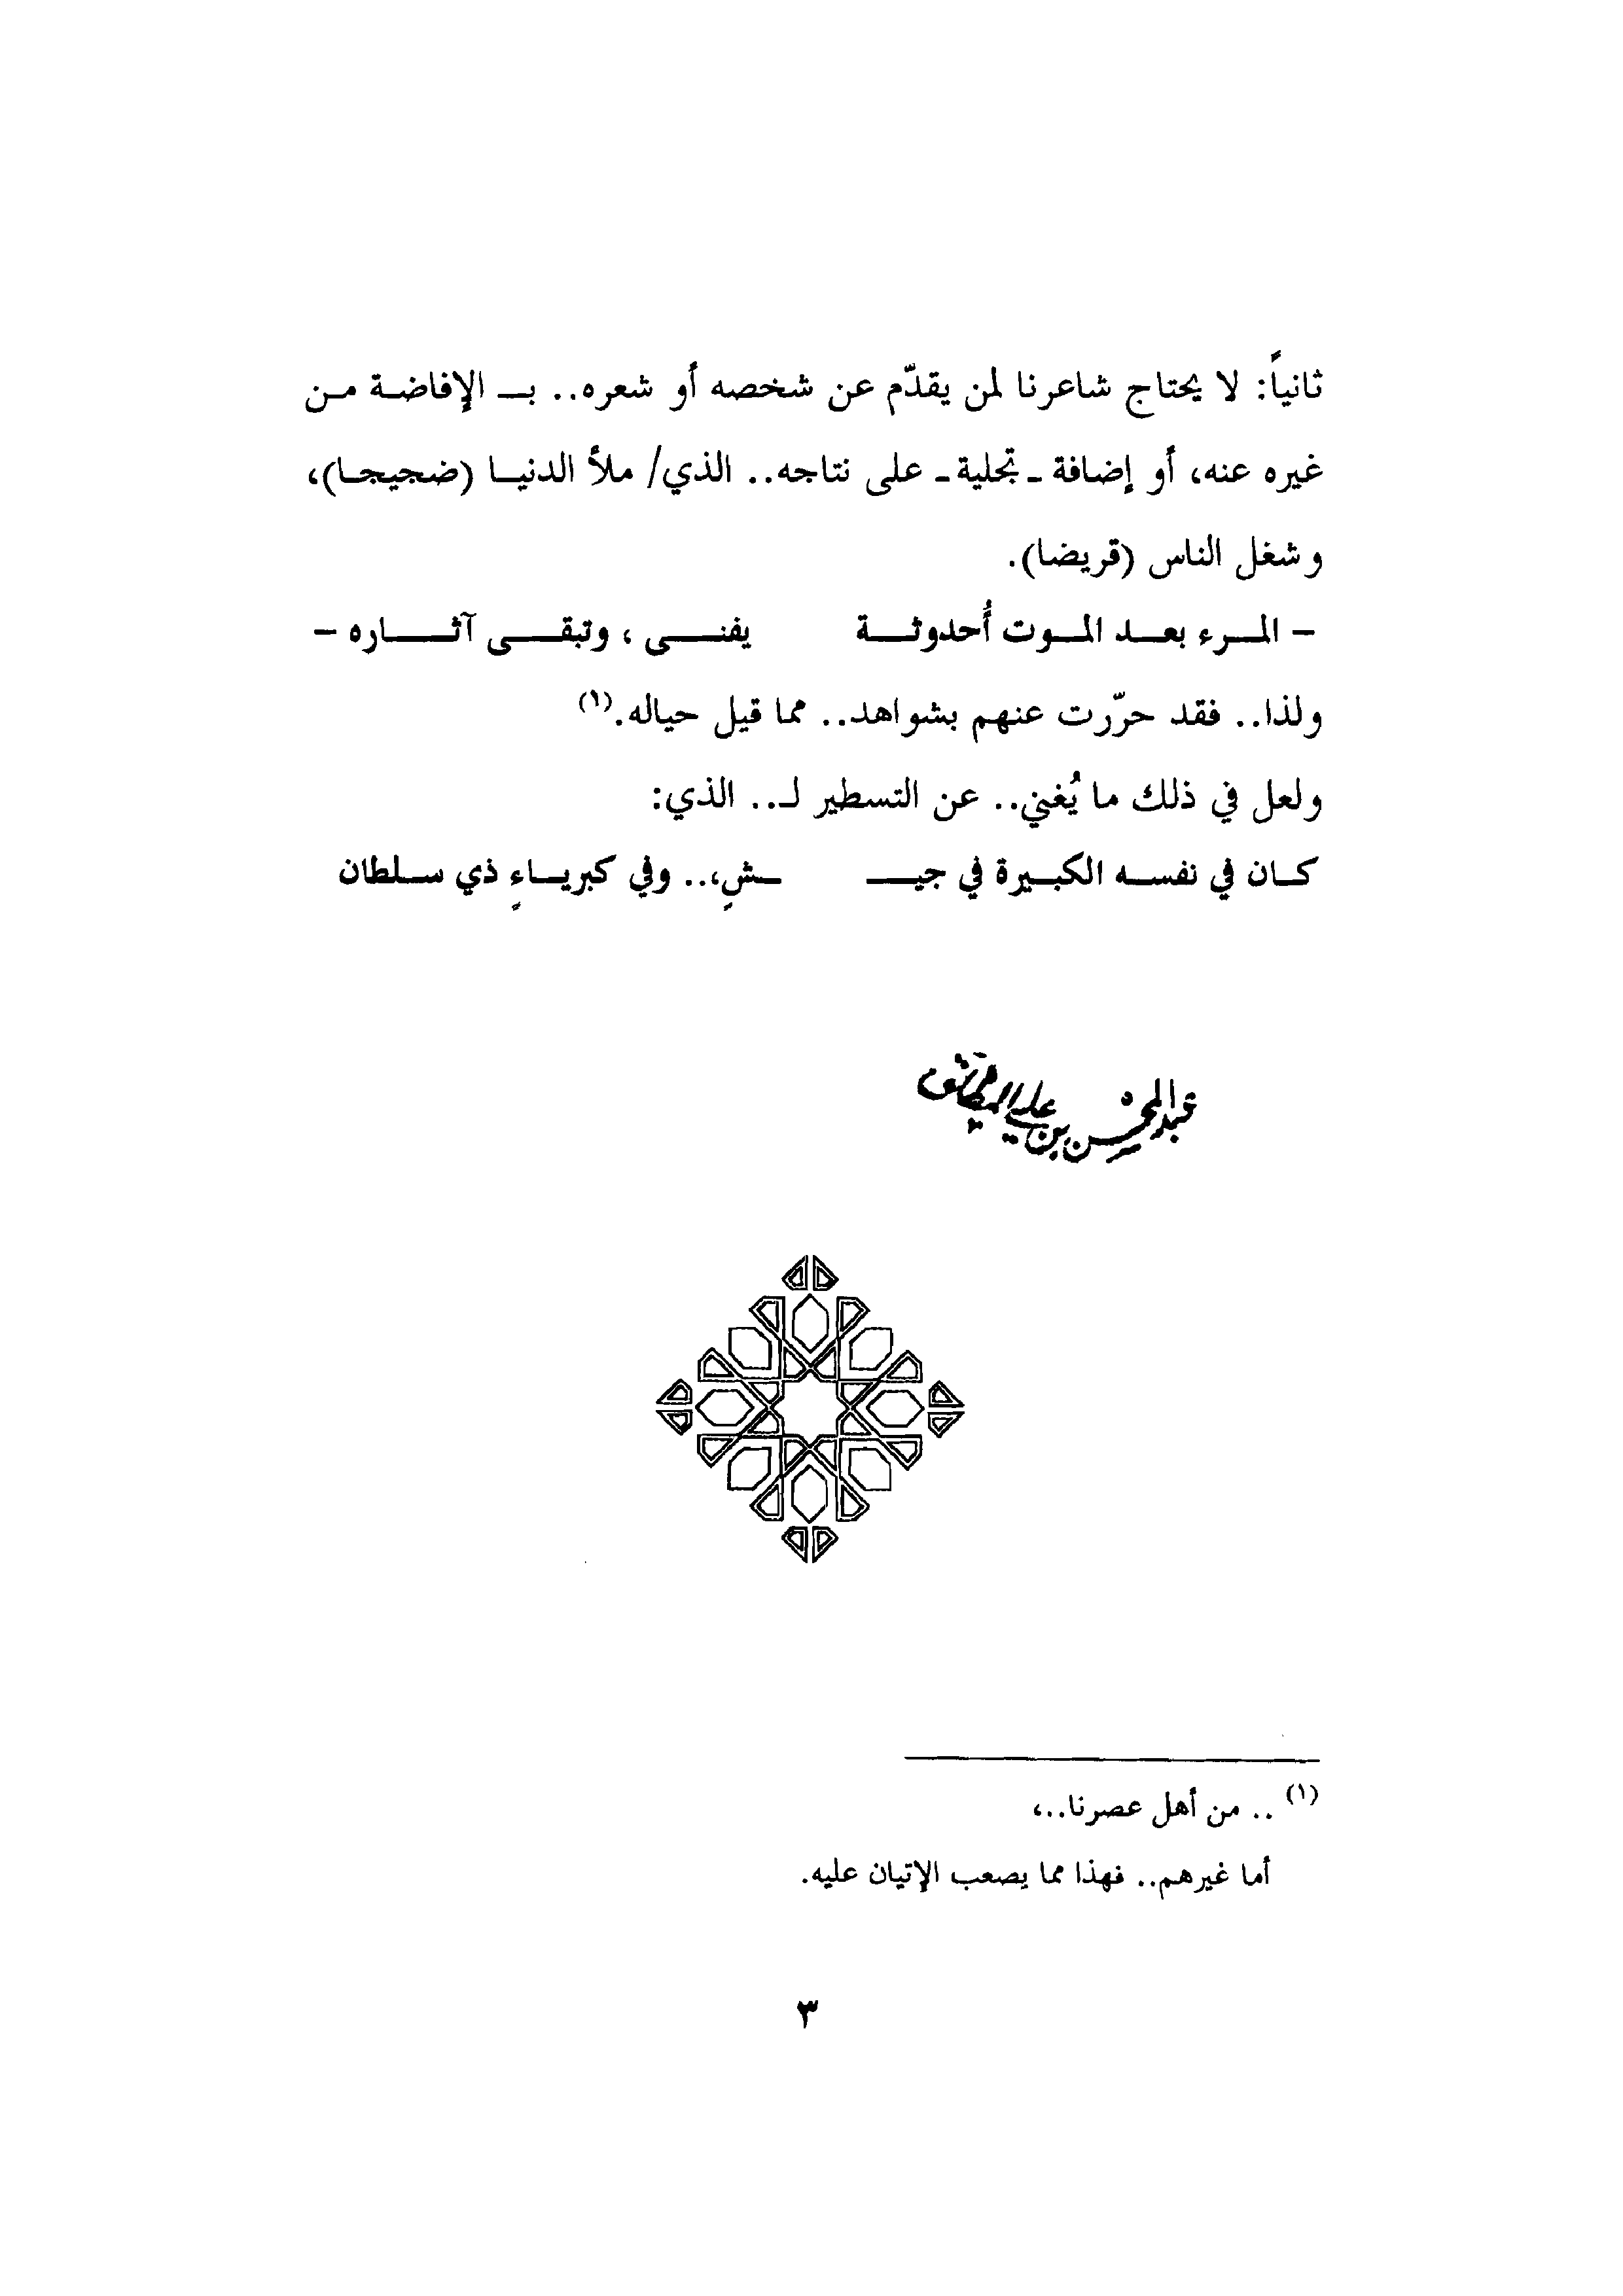 ثانياً: لا يحتاج شاعرنا لمن يقدّم عن شخصه أو شعره.. بـ الإفاضة من
غيره عنه، أو إضافة - تجلية - على نتاجه.. الذي/ ملأ الدنيا (ضجيجا)،
وشغل الناس (قريضا).
- المرء بعد الموت أُحدوثة يفنى ، وتبقى آثاره -
ولذا.. فقد حرّرت عنهم بشواهد.. مما قيل حياله.(١)
ولعل في ذلك ما يُغني.. عن التسطير لـ.. الذي:
كان في نفسه الكبيرة في جيـ ـشٍ،.. وفي كبرياءٍ ذي سلطان
عبد المحسن بن علي المطلق
(١) .. من أهل عصرنا..،
أما غيرهم.. فهذا مما يصعب الإتيان عليه.
٣